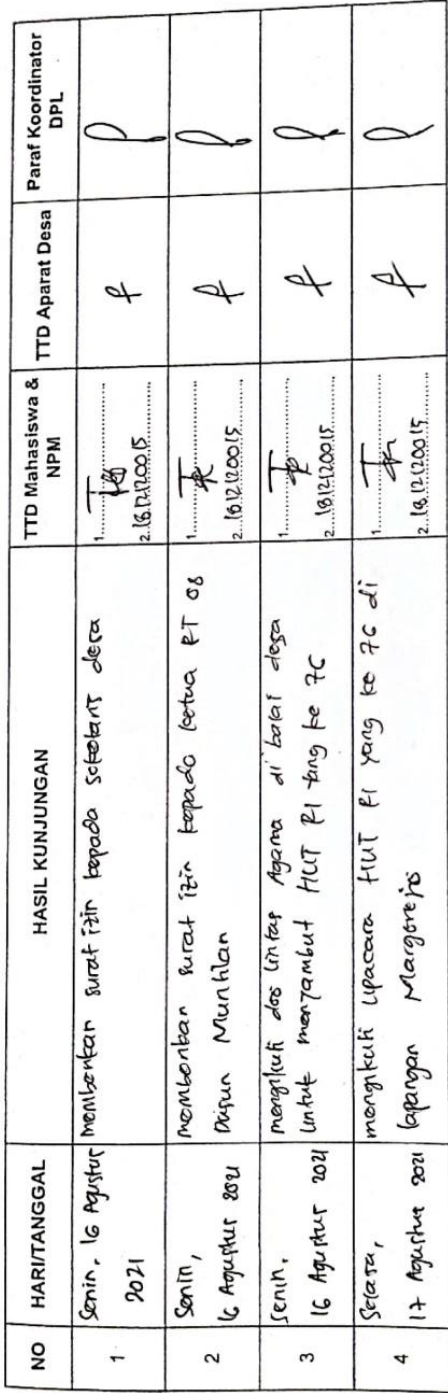 NO HARI/TANGGAL HASIL KUNJUNGAN TTD Mahasiswa & NPM TTD Aparat Desa Paraf Koordinator DPL
1 Senin, 16 Agustus 2021
memberikan surat izin kepada sekretaris desa
1.
2. 1812120015
2 Senin,
16 Agustus 2021
memberikan surat izin kepada ketua RT 08
Dusun Muntilan
1.
2. 1812120015
3 Senin,
16 Agustus 2021
mengikuti doa lintas Agama di balai desa
untuk menyambut HUT RI yang ke 76
1.
2. 1812120015
4 Selasa,
17 Agustus 2021
mengikuti upacara HUT RI yang ke 76 di
lapangan Margorejo
1.
2. 1812120015